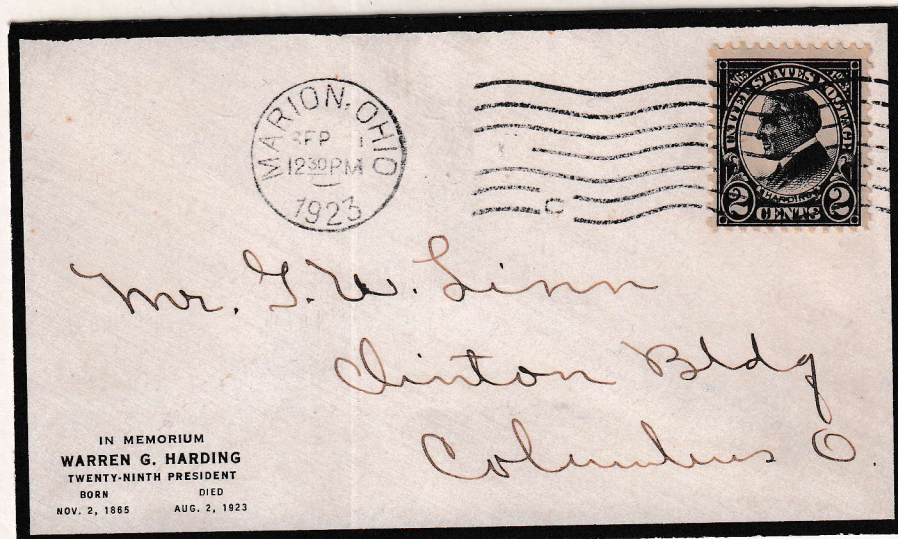 MARION, OHIO
SEP 1
12 30 PM
1923
C
1865 1923
UNITED STATES POSTAGE
HARDING
2 CENTS 2
Mr. G. W. Linn
Clinton Bldg
Columbus O.
IN MEMORIUM
WARREN G. HARDING
TWENTY-NINTH PRESIDENT
BORN DIED
NOV. 2, 1865 AUG. 2, 1923